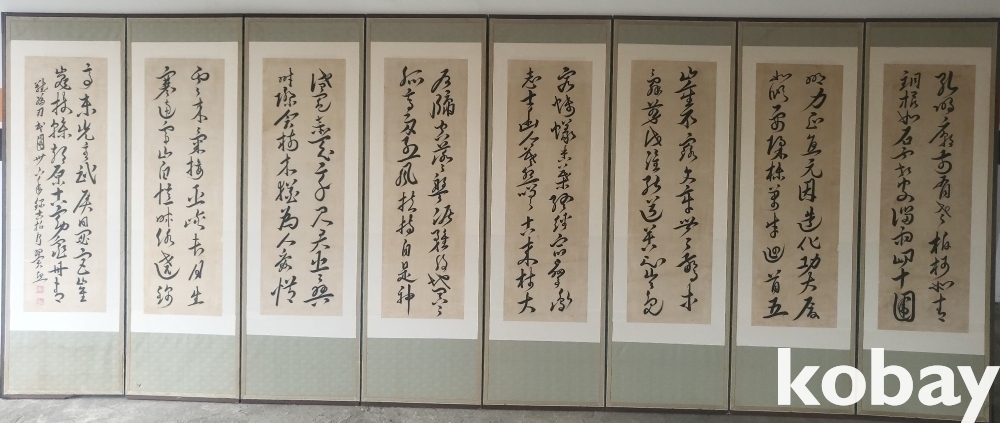 孔明廟前有老柏柯如青
銅根如石霜皮溜雨四十圍
明力正直元因造化功大廈
如傾要梁棟萬牛迴首五
山重不露文章世已驚未
辭剪伐誰能送苦心豈免
容螻蟻香葉終經宿鸞鳳
志士幽人莫怨嗟古來材大
戶牖空落々盤踞雖得地冥々
孤高多烈風扶持自是神
黛色參天二千尺君臣已與
時際會樹木猶為人愛惜
雲來氣接巫峽長月出
寒通雪山白憶昨路繞錦
亭東先主武侯同閟宮崔
嵬枝幹郊原古窈窕丹青
kobay